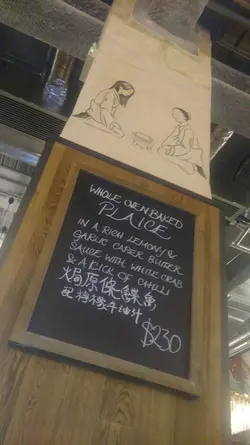 WHOLE OVEN-BAKED
PLAICE
IN A RICH LEMONY &
GARLIC CAPER BUTTER
SAUCE WITH WHITE CRAB
& A KICK OF CHILLI
焗原條鰈魚
配檸檬牛油汁
$230